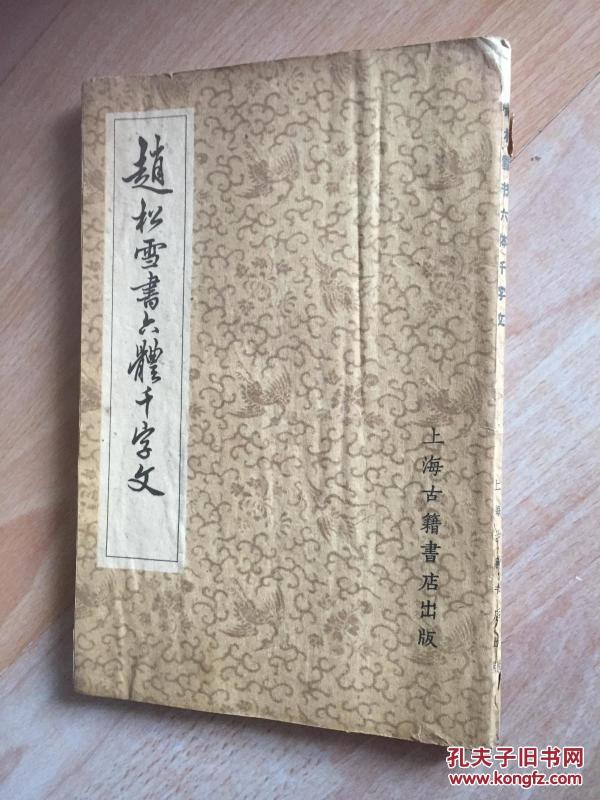 趙松雪書六體千字文
上海古籍書店出版
松雪书六体千字文
孔夫子旧书网
www.kongfz.com